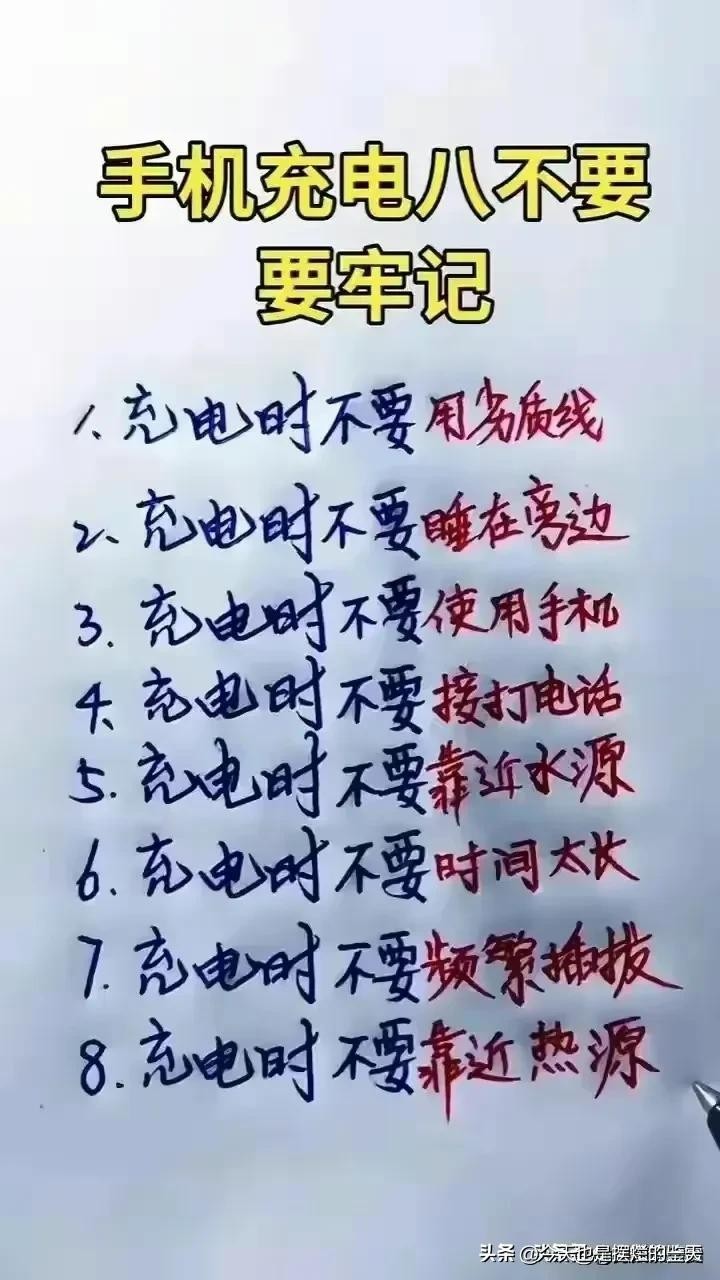 手机充电八不要
要牢记
1、充电时不要用劣质线
2、充电时不要睡在旁边
3.充电时不要使用手机
4、充电时不要接打电话
5.充电时不要靠近水源
6.充电时不要时间太长
7.充电时不要频繁插拔
8.充电时不要靠近热源
头条 @
也是摆烂的